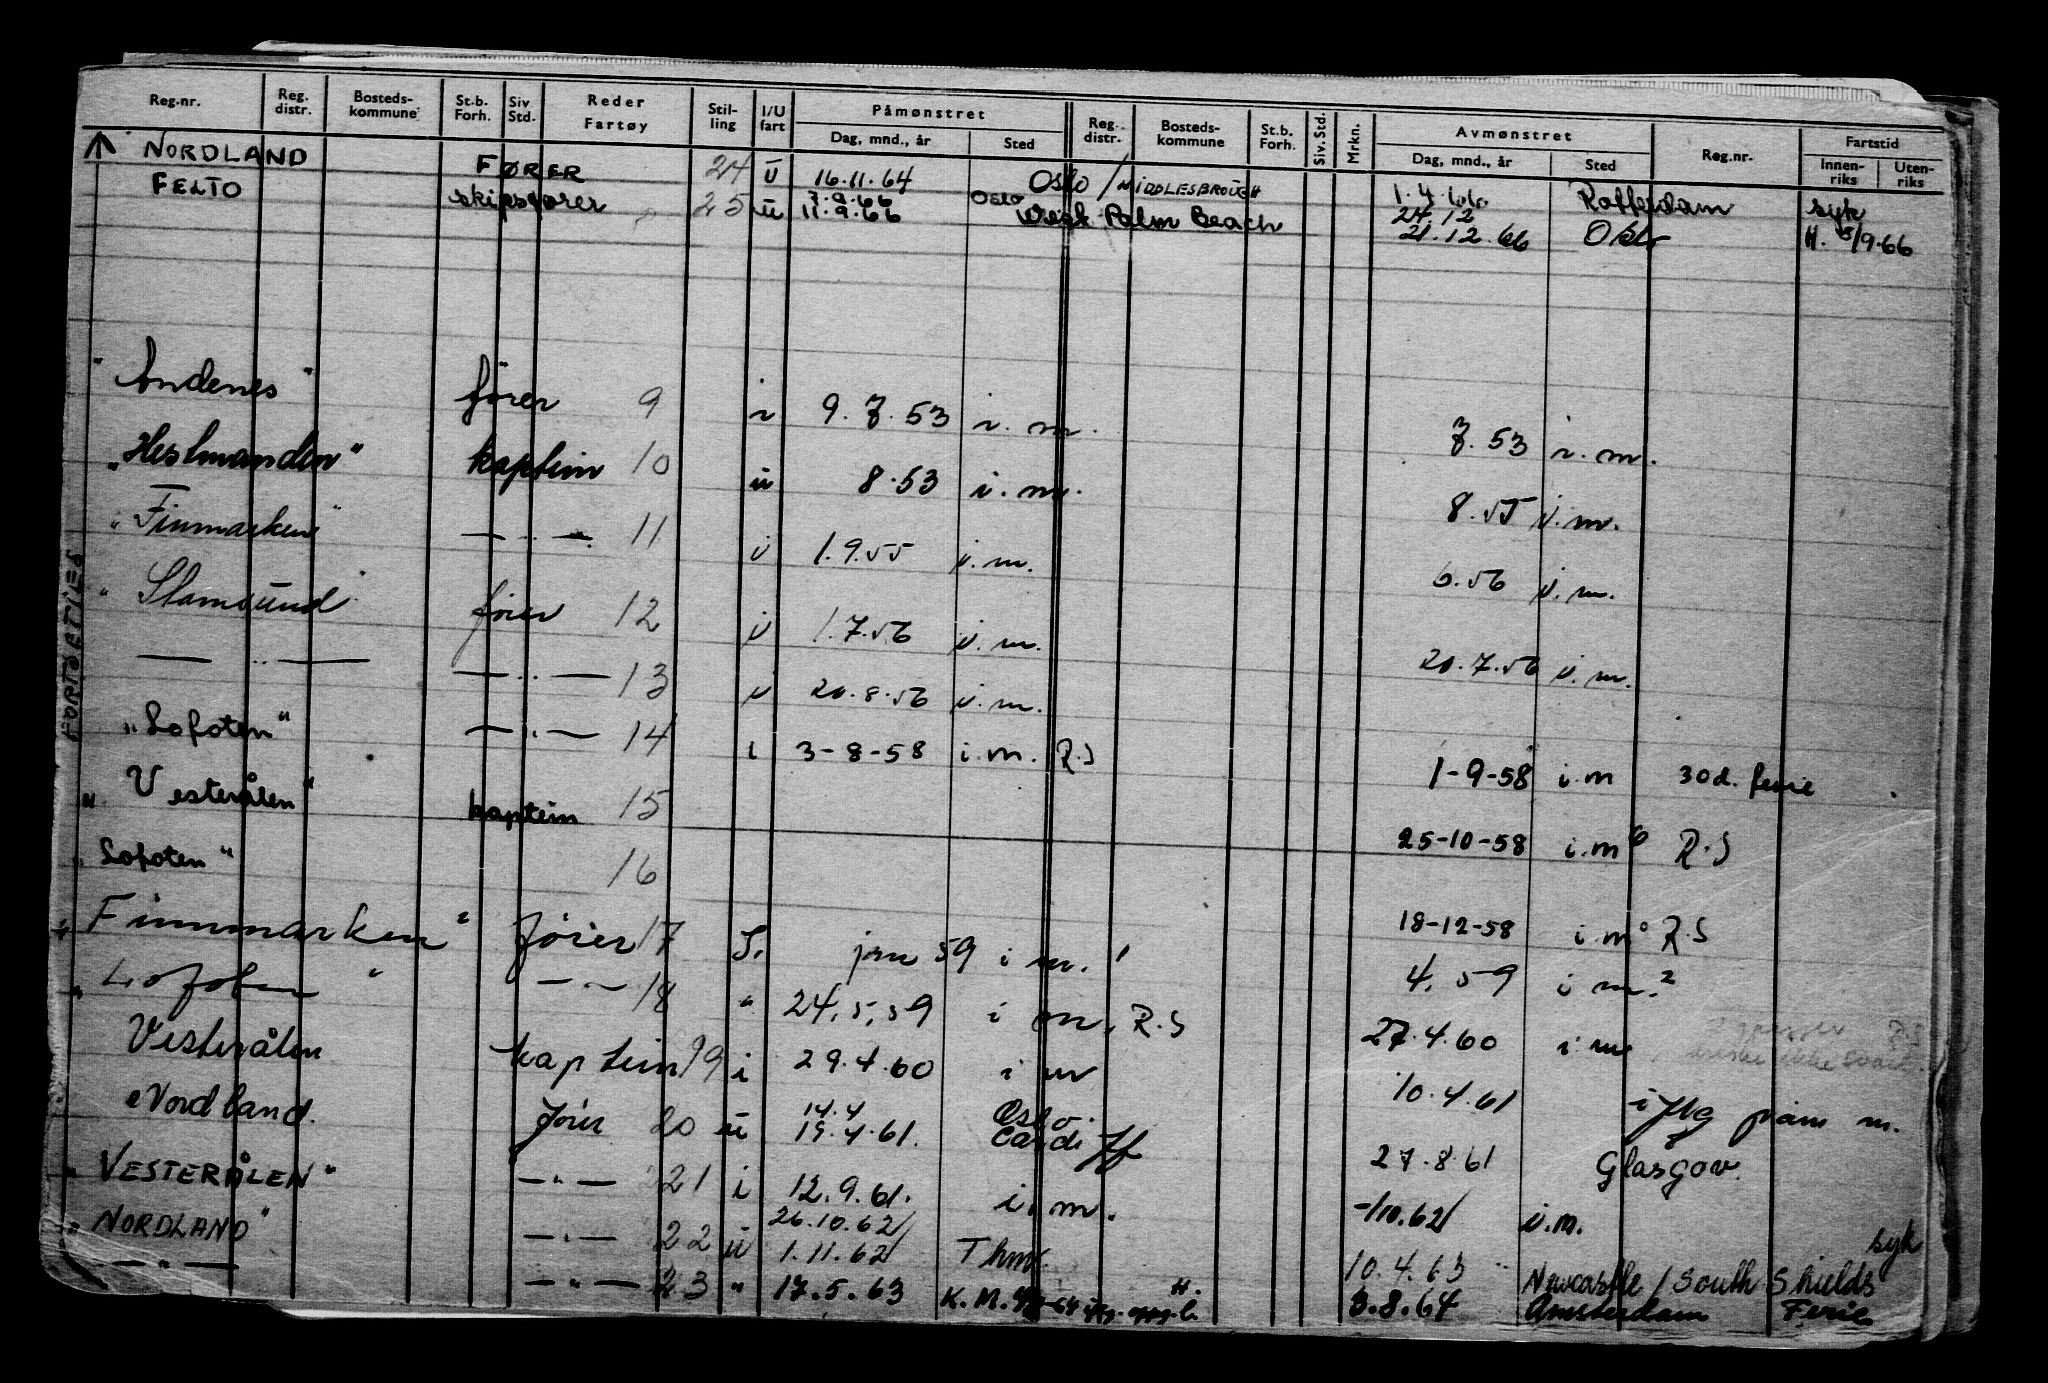 Reg.nr. Reg. distr. Bosteds- kommune St.b. Forh. Siv Std. Reder Fartøy Stil- ling I/U fart Påmønstret Dag, mnd., år Sted Reg. distr. Bosteds- kommune St.b. Forh. Siv. Std. Mrkn. Avmønstret Dag, mnd., år Sted Reg.nr. Fartstid Innen- riks Uten- riks
NORDLAND FØRER 24 ü 16.11.64 Oslo / MIDDLESBROUGH 1.4.66 Rotterdam syk
FELTO skipsfører 25 ü 7.9.66 Oslo 24.12
11.9.66 West Palm Beach 21.12.66 Oslo H. 5/9.66
"Andenes" fører 9 i 9.7.53 i.m. 7.53 i.m.
"Hestmanden" kaptein 10 ü 8.53 i.m. 8.55 i.m.
"Finmarken" — " — 11 i 1.9.55 i.m. 6.56 i.m.
"Stamsund" fører 12 i 1.7.56 i.m. 20.7.56 i.m.
— " — — " — 13 i 20.8.56 i.m.
"Lofoten" — " — 14 i 3-8-58 i.m. R.S 1-9-58 i.m 30d. ferie
"Vesterålen" kaptein 15 25-10-58 i.m R.S
"Lofoten" 16 18-12-58 i.m R.S
"Finnmarken" fører 17 jan 59 i m. 4.59 i m.
"Lofoten" — " — 18 " 24.5.59 i m. R.S 27.4.60 i m
Vesterålen kaptein 19 i 29.4.60 i m 10.4.61 påm m.
Nordland fører 20 ü 14.4 Oslo
19.4.61. Cardiff 27.8.61 Glasgow
"VESTERÅLEN" — " — 21 i 12.9.61. i.m. -/10.62 i.m.
"NORDLAND" — " — 22 ü 26.10.62
1.11.62 Thm. 10.4.63 Newcastle / South Shields syk
— " — — " — 23 " 17.5.63 K.M. H. 3.8.64 Amsterdam Ferie
FORTSETTES